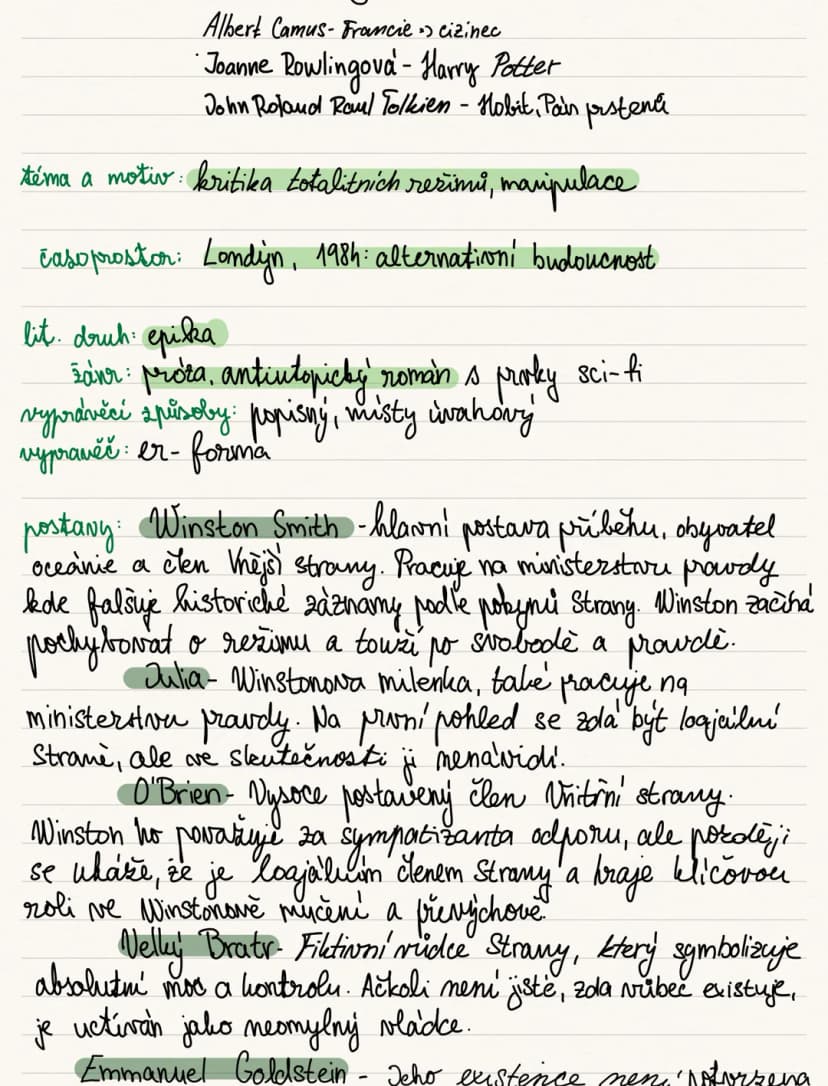 Albert Camus- Francie → cizinec
Joanne Rowlingová - Harry Potter
John Roland Raul Tolkien - Hobit, Pán prstenů
téma a motiv: kritika totalitních režimů, manipulace
časoprostor: Londýn, 1984: alternativní budoucnost
lit. druh: epika
žánr: próza, antiutopický román s prvky sci-fi
vyprávěcí způsoby: popisný, místy úvahový
vypravěč: er- forma
postavy: Winston Smith - hlavní postava příběhu, obyvatel
oceánie a člen Vnější strany. Pracuje na ministerstvu pravdy
kde falšuje historické záznamy podle pokynů Strany. Winston začíná
pochybovat o režimu a touží po svobodě a pravdě.
Julia - Winstonova milenka, také pracuje na
ministerstvu pravdy. Na první pohled se zdá být loajální
Straně, ale ve skutečnosti ji nenávidí.
O'Brien - Vysoce postavený člen Vnitřní strany.
Winston ho považuje za sympatizanta odporu, ale později
se ukáže, že je loajálním členem Strany a hraje klíčovou
roli ve Winstonově mučení a převýchově.
Velký Bratr - Fiktivní vůdce Strany, který symbolizuje
absolutní moc a kontrolu. Ačkoli není jisté, zda vůbec existuje,
je uctíván jako neomylný vládce.
Emmanuel Goldstein - Jeho existence není potvrzena